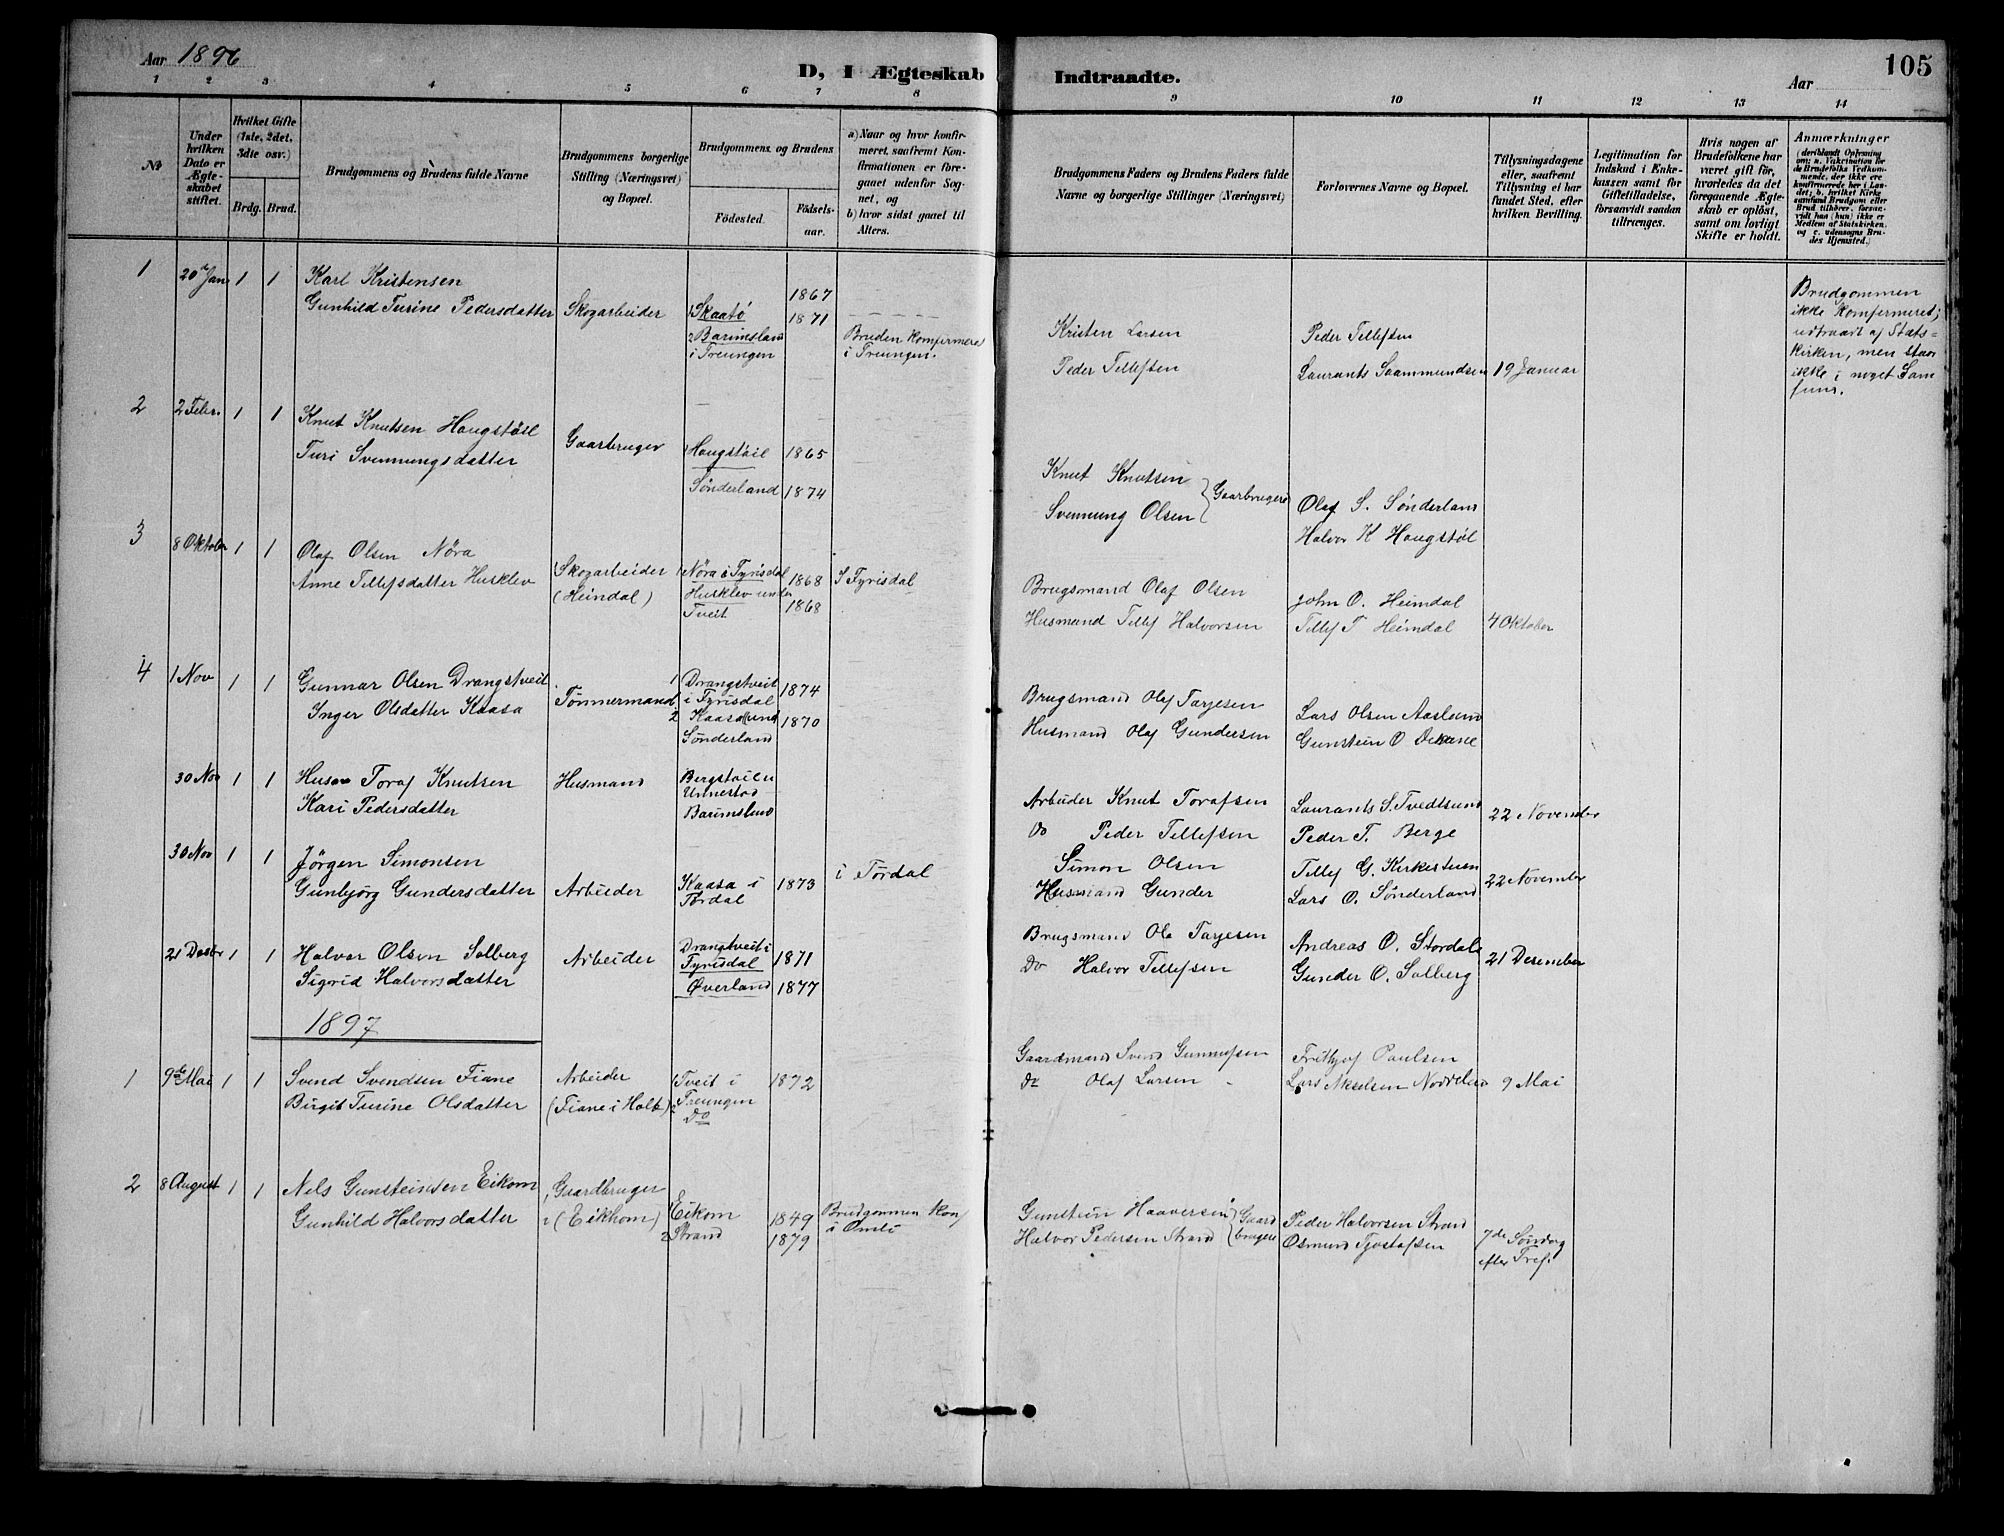 Aar 1896
D, I Ægteskab Indtraadte.
Aar
105
1 2 3 4 5 6 7 8 9 10 11 12 13 14
No
Under hvilken Dato er Ægteskabet stiftet.
Hvilket Gifte (1ste, 2det, 3die osv.)
Brdg. Brud.
Brudgommens og Brudens fulde Navne
Brudgommens borgerlige Stilling (Næringsvei) og Bopæl.
Brudgommens og Brudens
Födested.
Födselsaar.
a) Naar og hvor konfirmeret, saafremt Konfirmationen er foregaaet udenfor Sognet, og
b) hvor sidst gaaet til Alters.
Brudgommens Faders og Brudens Faders fulde Navne og borgerlige Stillinger (Næringsvei)
Forlovernes Navne og Bopæl.
Tillysningsdagene eller, saafremt Tillysning ei har fundet Sted, efter hvilken Bevilling.
Legitimation for Indskud i Enkekassen samt for Giftetilladelse, forsaavidt saadan tiltrænges.
Hvis nogen af Brudefolkene har været gift før, hvorledes da det foregaaende Ægteskab er oplöst, samt om lovligt Skifte er holdt.
Anmærkninger
(deriblandt Oplysning om: a. Vakcination for de Brudefolks Vedkommende, der ikke ere konfirmerede her i Landet; b. hvilket Kirkesamfund Brudgom eller Brud tilhörer, forsaavidt han (hun) ikke er Medlem af Statskirken, og c. udensogns Brudes Hjemsted.)
1 20de Jan 1 1 Karl Kristensen
Gunhild Turine Pedersdatter
Skogarbeider
1 Skaatö 1867
2 Barimsland i Treungen 1871
Bruden komfirmeret i Treungen.
Kristen Larsen
Peder Tellefsen
Peder Tellefsen
Laurants Saammundsen
19 Januar
Brudgommen
ikke komfirmeret;
udtraadt af Stats-
kirken, men staar
ikke i noget Sam
fund.
2 2 Febr. 1 1 Knut Knutsen Haugstöil
Turi Svennungsdatter
Gaarbruger
1 Haugstöil 1865
Sönderland 1874
Knut Knutsen
Svennung Olsen
Gaarbrugere
Olaf S. Sönderland
Halvor K Haugstöl
3 8 Oktober 1 1 Olaf Olsen Nöra
Anne Tellefsdatter Husklev
Skogarbeider
(Heindal)
1 Nöra i Fyrisdal 1868
Husklev under Tveit 1868
I Fyrisdal
Brugsmand Olaf Olsen
Husmand Tellef Halvorsen
John O. Heimdal
Tellef T Heimdal
4 Oktober
4 1 Nov 1 1 Gunnar Olsen Drangstveit
Inger Olsdatter Kaasa
Tömmermand
1 Drangstveit i Fyrisdal 1874
2 Kaasa und Sönderland 1870
Brugsmand Olaf Tarjesen
Husmand Olaf Gundersen
Lars Olsen Aasland
Gunstein O
30 Nov 1 1 Toraf Knutsen
Kari Pedersdatter
Husmand
Bergstöil u
Unnestad
Barimsland
Arbeider Knut Torafsen
Do Peder Tellefsen
Laurants S. Tvedtsund
Peder T. Berge
22 November
30 Nov 1 1 Jörgen Simonsen
Gunbjörg Gundersdatter
Arbeider
Kaasa i Tördal 1873
i Tördal
Simon Olsen
Husmand Gunder
Tellef G. Kirkestuen
Lars O. Sönderland
22 November
21 Desbr 1 1 Halvor Olsen Solberg
Sigrid Halvorsdatter
Arbeider
Drangstveit i Fyrisdal 1871
Øverland 1877
Brugsmand Ole Tarjesen
Do Halvor Tellefsen
Andreas O. Stordale
Gunder O. Solberg
21 Desember
1897
1 9de Mai 1 1 Svend Svendsen Fiane
Birgit Turine Olsdatter
Arbeider
(Fiane i Holt)
1 Tveit i Treungen 1872
2 Do
Gaardmand Svend Gunnufsen
Do Olaf Larsen
Frithjof Paulsen
Lars Akselsen
9 Mai
2 8 August 1 1 Nels Gunsteinsen Eikom
Gunhild Halvorsdatter
Gaardbruger
(Eikhom)
Eikom 1849
2 Strand 1879
Brudgommen Konf i Omli
Gunstein Haaversen
Halvor Pedersen Strand
Gaardbrugere
Peder Halvorsen Strand
Osmund Tjostafsen
7de Søndag
efter Tref.